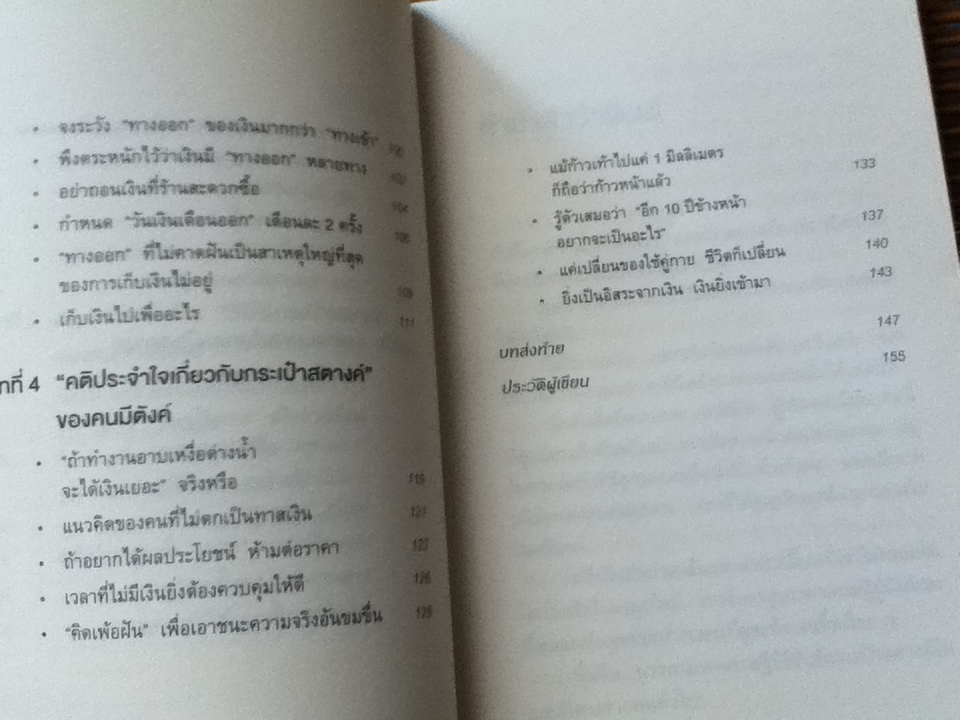 • จงระวัง "ทางออก" ของเงินมากกว่า "ทางเข้า" 100
• พึงตระหนักไว้ว่าเงินมี "ทางออก" หลายทาง 102
• อย่าถอนเงินที่ร้านสะดวกซื้อ 104
• กำหนด "วันเงินเดือนออก" เดือนละ 2 ครั้ง 106
• "ทางออก" ที่ไม่คาดฝันเป็นสาเหตุใหญ่ที่สุด
ของการเก็บเงินไม่อยู่ 109
• เก็บเงินไปเพื่ออะไร 111
ทที่ 4 "คติประจำใจเกี่ยวกับกระเป๋าสตางค์"
ของคนมีตังค์
• "ถ้าทำงานอาบเหงื่อต่างน้ำ
จะได้เงินเยอะ" จริงหรือ 119
• แนวคิดของคนที่ไม่ตกเป็นทาสเงิน 121
• ถ้าอยากได้ผลประโยชน์ ห้ามต่อราคา 123
• เวลาที่ไม่มีเงินยิ่งต้องควบคุมให้ดี 126
• "คิดเพ้อฝัน" เพื่อเอาชนะความจริงอันขมขื่น 129
• แม้ก้าวเท้าไปแค่ 1 มิลลิเมตร
ก็ถือว่าก้าวหน้าแล้ว 133
• รู้ตัวเสมอว่า "อีก 10 ปีข้างหน้า
อยากจะเป็นอะไร" 137
• แค่เปลี่ยนของใช้คู่กาย ชีวิตก็เปลี่ยน 140
• ยิ่งเป็นอิสระจากเงิน เงินยิ่งเข้ามา 143
บทส่งท้าย 147
ประวัติผู้เขียน 155